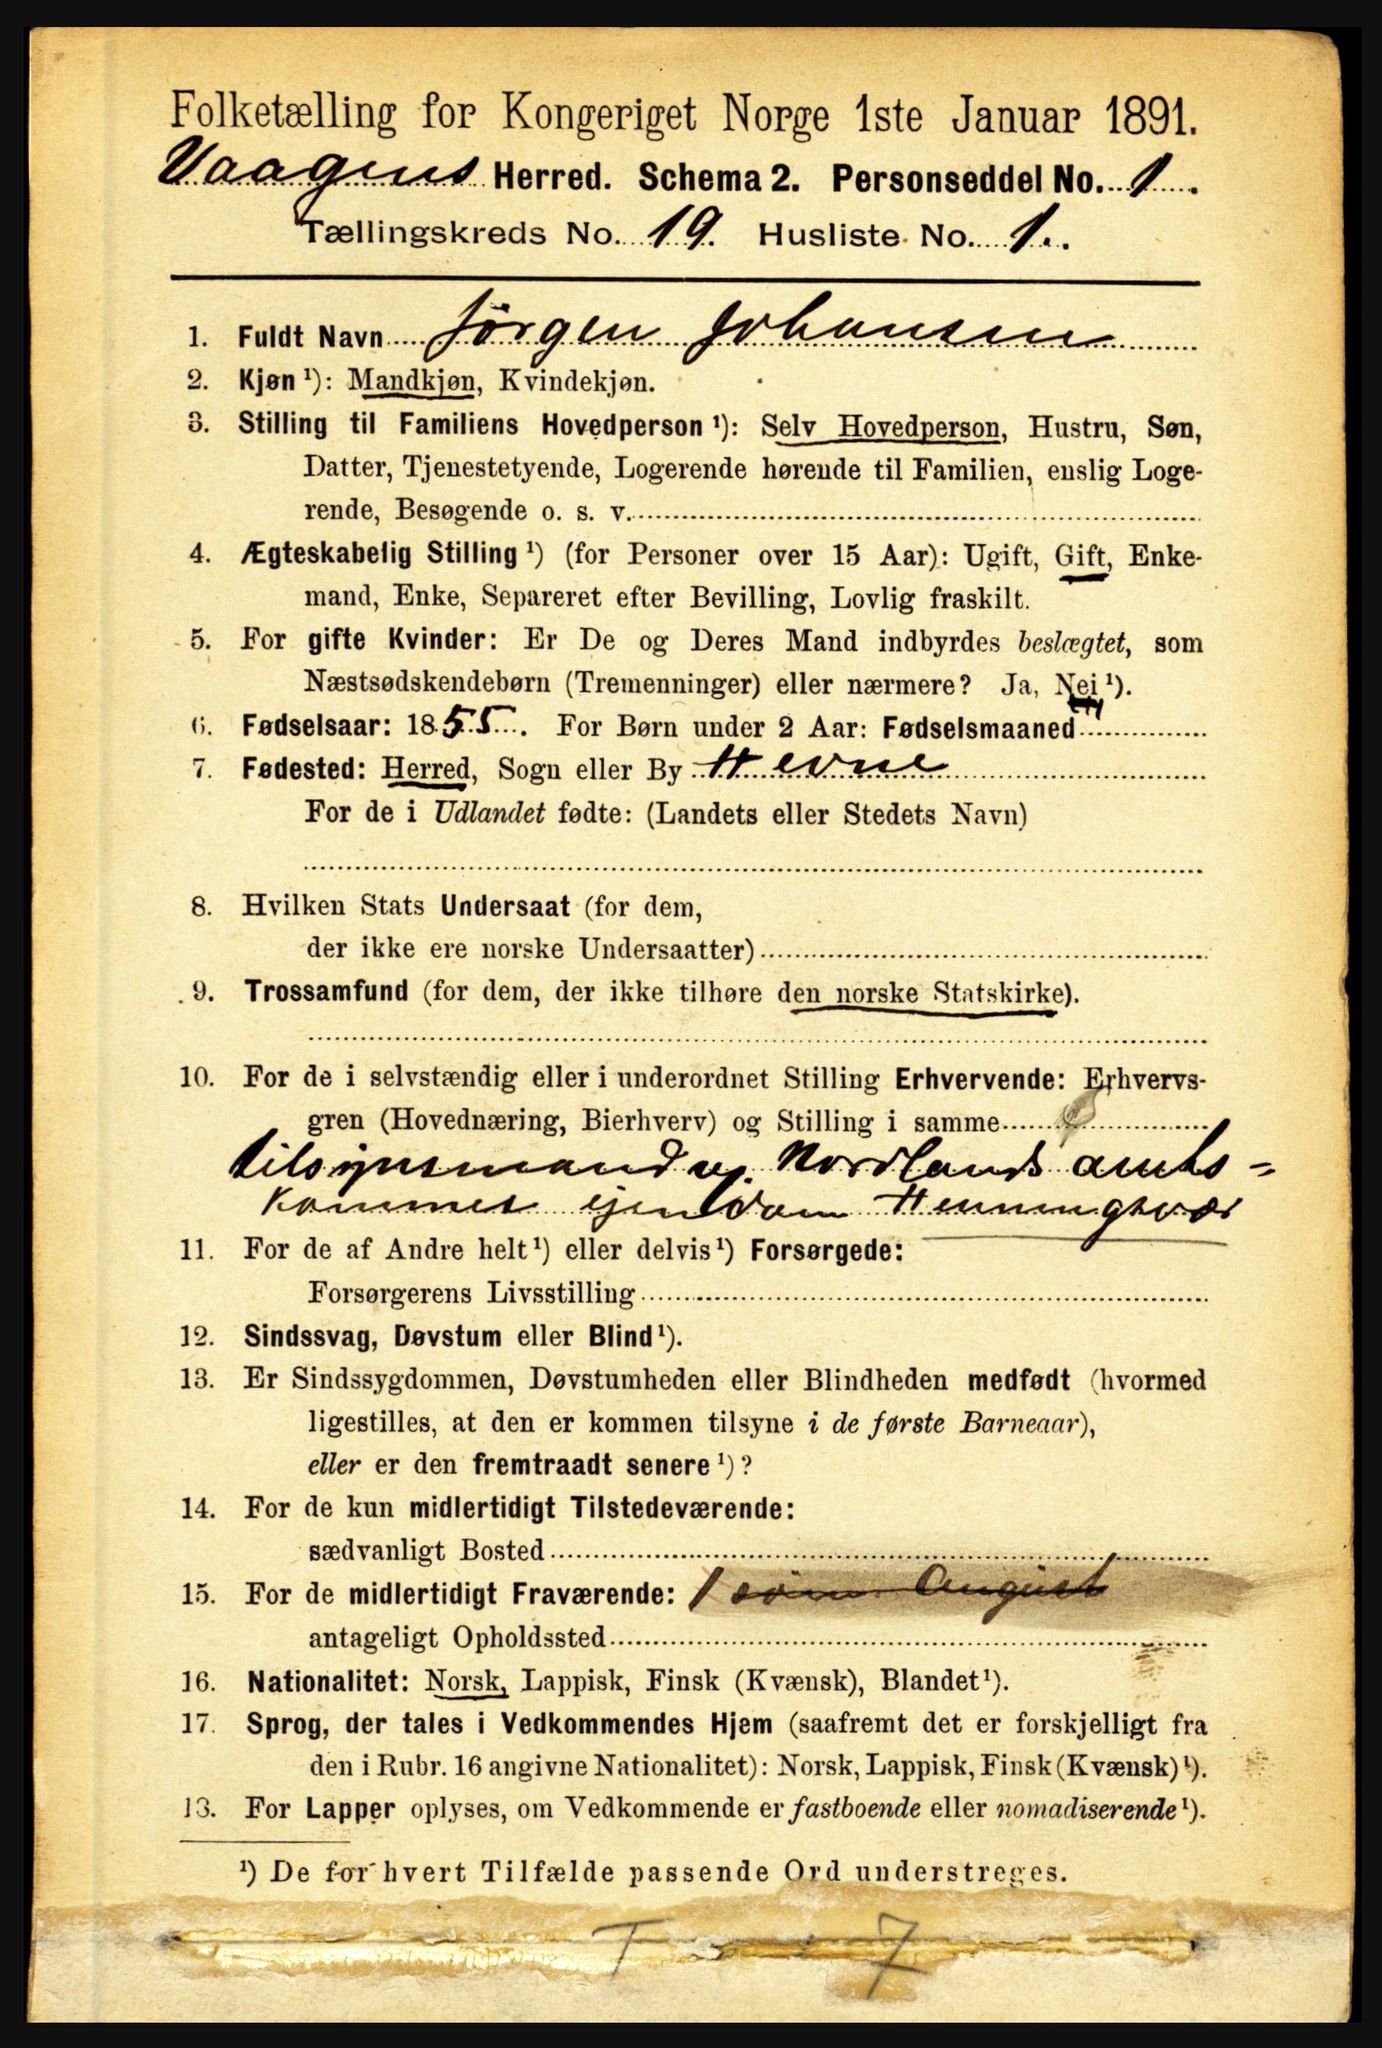 Folketælling for Kongeriget Norge 1ste Januar 1891.
Vaagens Herred. Schema 2. Personseddel No. 1.
Tællingskreds No. 19. Husliste No. 1.
1. Fuldt Navn Jörgen Johansen
2. Kjøn ¹): Mandkjøn, Kvindekjøn.
3. Stilling til Familiens Hovedperson ¹): Selv Hovedperson, Hustru, Søn,
Datter, Tjenestetyende, Logerende hørende til Familien, enslig Loge-
rende, Besøgende o. s. v.
4. Ægteskabelig Stilling ¹) (for Personer over 15 Aar): Ugift, Gift, Enke-
mand, Enke, Separeret efter Bevilling, Lovlig fraskilt.
5. For gifte Kvinder: Er De og Deres Mand indbyrdes beslægtet, som
Næstsødskendebørn (Tremenninger) eller nærmere? Ja, Nei ¹).
6. Fødselsaar: 1855. For Børn under 2 Aar: Fødselsmaaned
7. Fødested: Herred, Sogn eller By Hevne
For de i Udlandet fødte: (Landets eller Stedets Navn)
8. Hvilken Stats Undersaat (for dem,
der ikke ere norske Undersaatter)
9. Trossamfund (for dem, der ikke tilhøre den norske Statskirke).
10. For de i selvstændig eller i underordnet Stilling Erhvervende: Erhvervs-
gren (Hovednæring, Bierhverv) og Stilling i samme
tilsynsmand v. Nordlands amts-
kommes ejendom Henningsvær
11. For de af Andre helt ¹) eller delvis ¹) Forsørgede:
Forsørgerens Livsstilling
12. Sindssvag, Døvstum eller Blind ¹).
13. Er Sindssygdommen, Døvstumheden eller Blindheden medfødt (hvormed
ligestilles, at den er kommen tilsyne i de første Barneaar),
eller er den fremtraadt senere ¹)?
14. For de kun midlertidigt Tilstedeværende:
sædvanligt Bosted
15. For de midlertidigt Fraværende: 1 søn August
antageligt Opholdssted
16. Nationalitet: Norsk, Lappisk, Finsk (Kvænsk), Blandet ¹).
17. Sprog, der tales i Vedkommendes Hjem (saafremt det er forskjelligt fra
den i Rubr. 16 angivne Nationalitet): Norsk, Lappisk, Finsk (Kvænsk) ¹).
13. For Lapper oplyses, om Vedkommende er fastboende eller nomadiserende ¹).
¹) De for hvert Tilfælde passende Ord understreges.
T 7